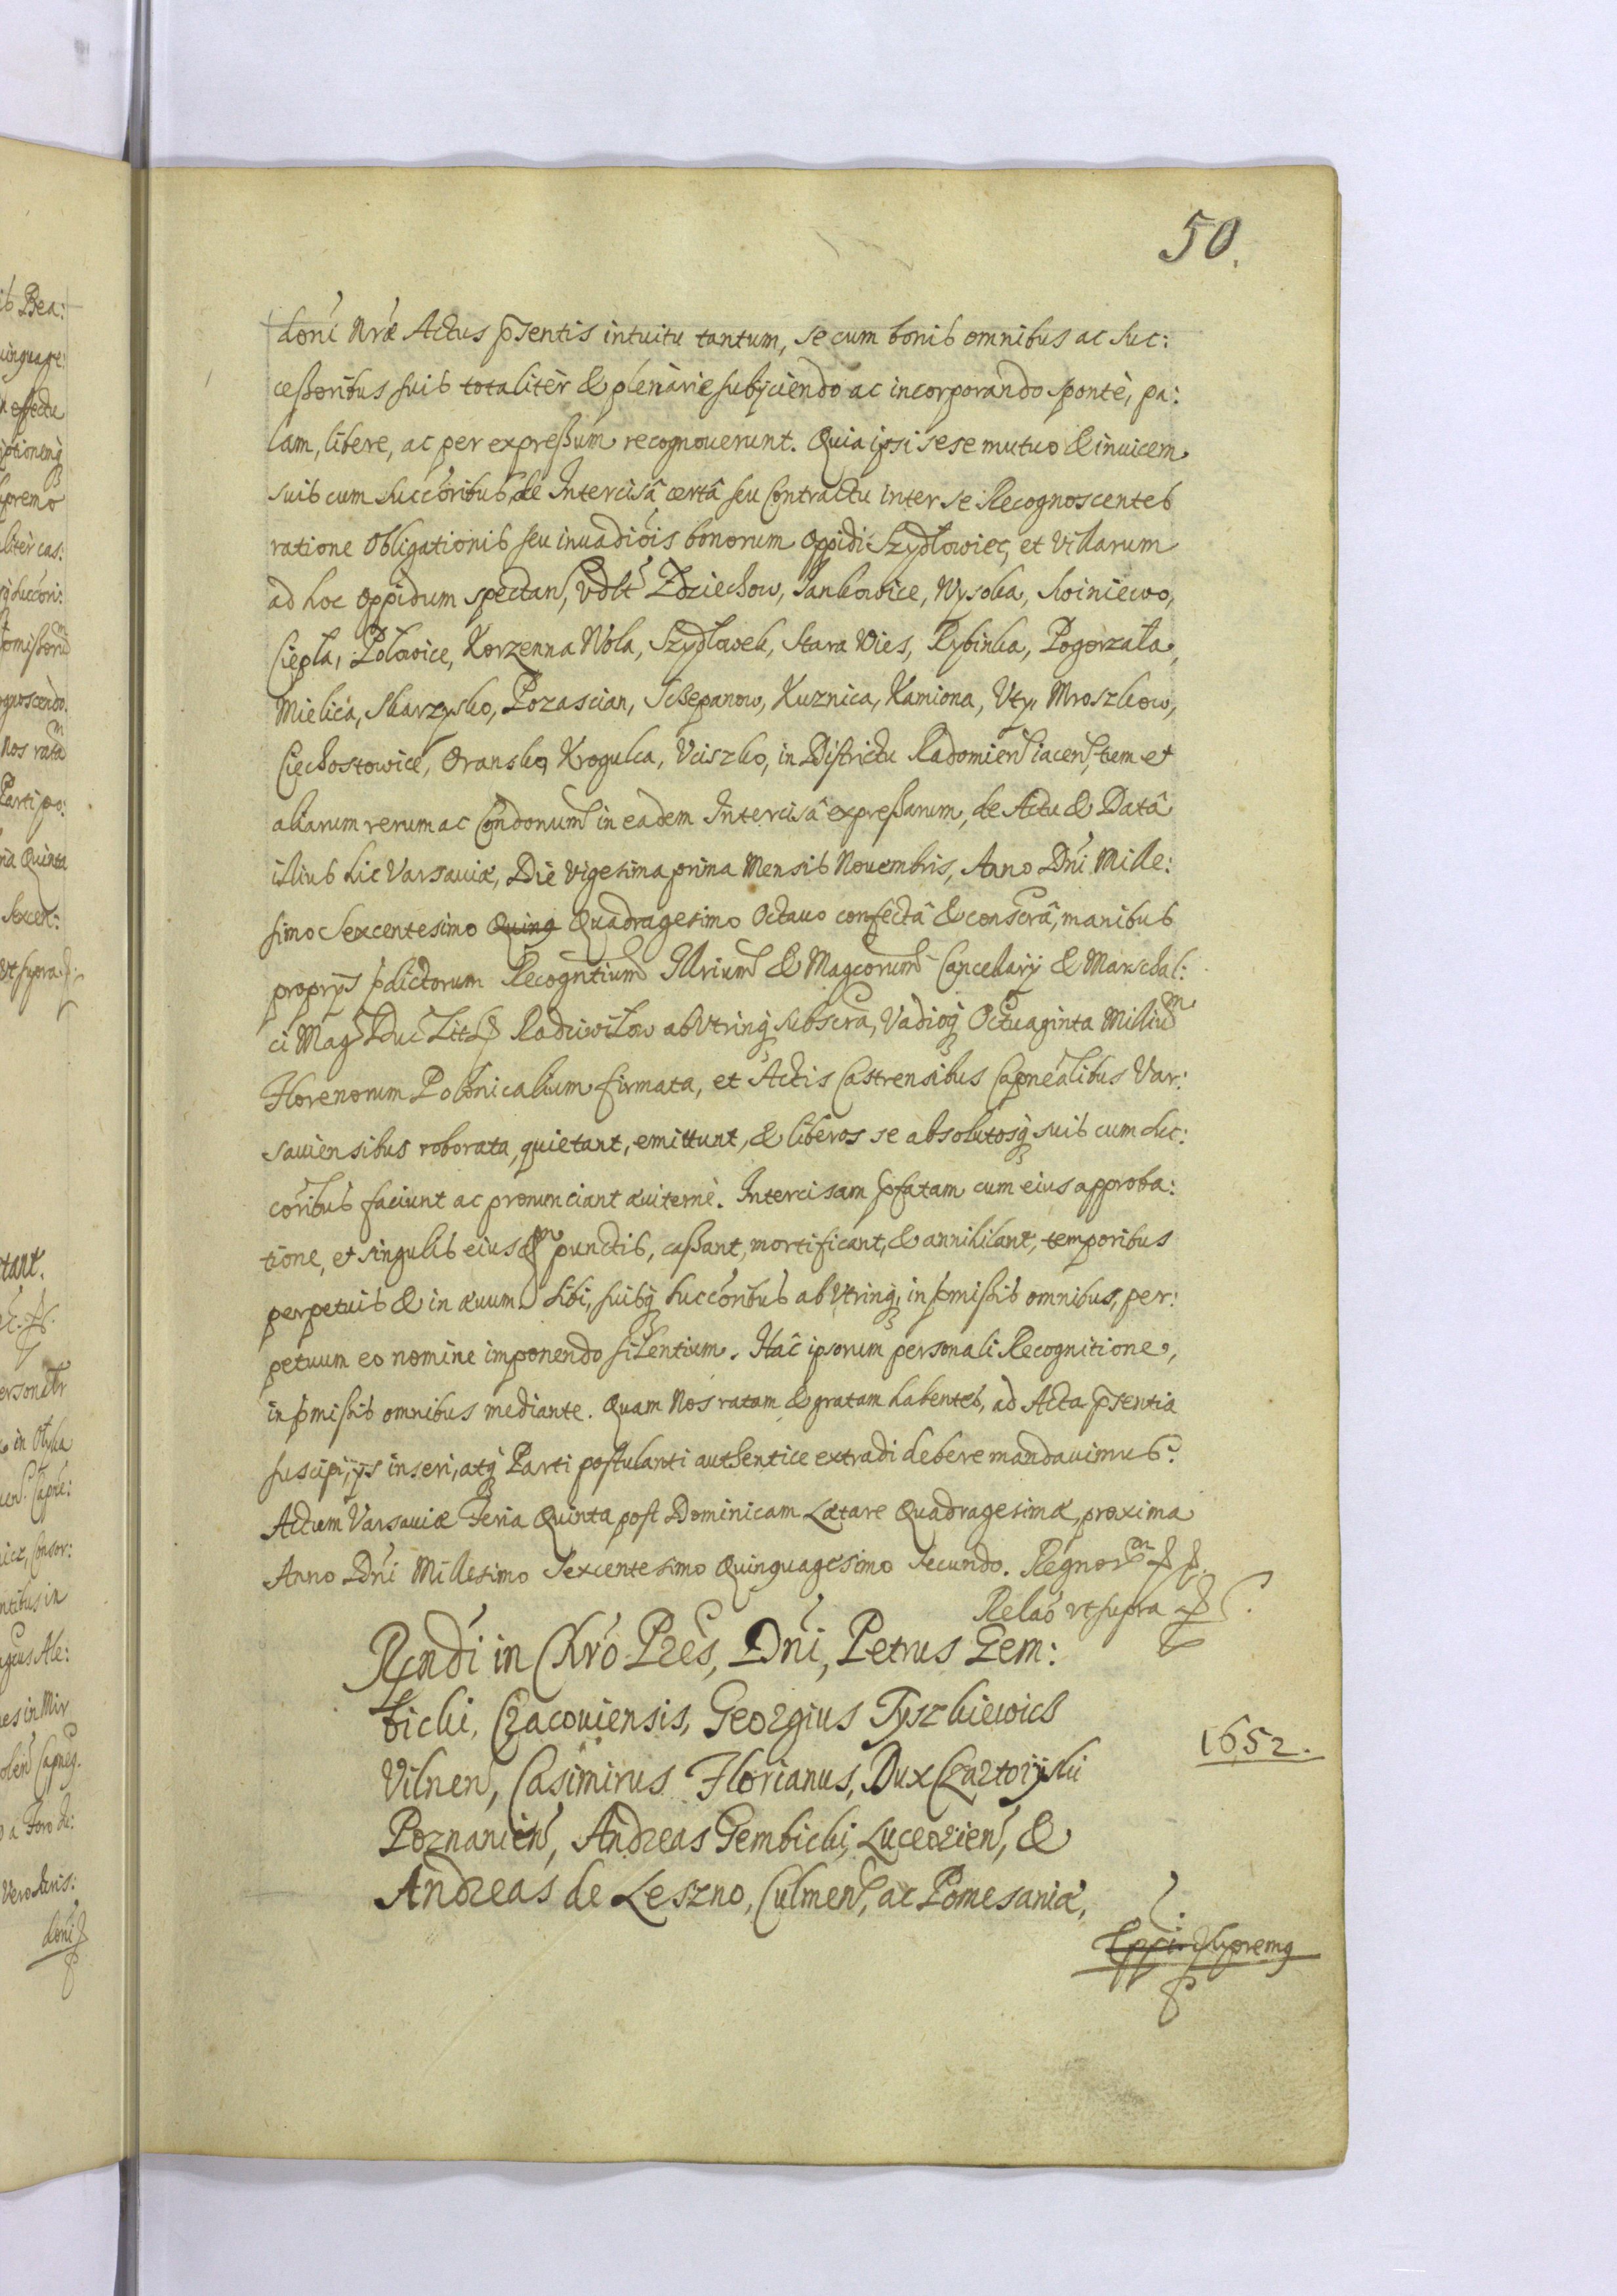 50.
doni Nrae Actus pñtentis intuitu tantum, se cum bonis omnibus ac suc:
cessoribus suis totaliter & plenarie subijciendo ac incorporando sponte, pa:
lam, libere, ac per expressum recognouerunt. Quia ipsi sese mutuo & inuicem
suis cum succoribus, de Intercisâ certâ seu Contractu inter se Recognoscentes
ratione Obligationis seu inuadiois bonorum Oppidi Szydłowiec, et Villarum
ad hoc Oppidum spectan, vdlt Zdziechow, Jankowice, Wysoka, Swiniewo,
Ciepła, Połowice, Korzenna Wola, Szydłowek, Stara Wies, Rybinka, Pogorzała,
Mielica, Skarzysko, Pozascian, Sczepanow, Kuznica, Kamiona, Vty, Mroszkow,
Ciechostowice, Oransko, Krogulca, Vciszko, in Districtu Radomien iacen, tum et
aliarum rerum ac Condonum in eadem Intercisâ expressarum, de Actu & Datâ
illius hic Varsauiae, Die vigesima prima Mensis Nouembris, Anno Dni Mille:
simo Sexcentesimo Quing Quadragesimo Octauo confectâ & conscrâ, manibus
proprijs pdictorum Recogntium Illrium & Magcorum Cancellarij & Marschal:
ci Mag Duc Lit Radziwiłow ab Vtrinq subscra, Vadioq Octuaginta Milliu m
Florenorum Polonicalium firmata, et Actis Castrensibus Capnealibus Var:
sauiensibus roborata, quietant, emittunt, & liberos se absolutosq suis cum suc:
coribus faciunt ac pronunciant auiterne. Intercisam pfatam cum eius approba:
tione, et singulis eius punctis, cassant, mortificant, & annihilant, temporibus
perpetuis & in aeuum. Sibi, suisq succoribus ab Vtrinq, in pmissis omnibus, per:
petuum eo nomine imponendo silentium. Hac ipsorum personali Recognitione,
in pmissis omnibus mediante. Quam Nos ratam & gratam habentes, ad Acta psentia
suscipi, ijs inseri, atq Parti postulanti authentice extradi debere mandauimus.
Actum Varsauiae Feria Quinta post Dominicam Laetare Quadragesimae, proxima
Anno Dni Millesimo Sexcentesimo Quinquagesimo Secundo. Regnor m
Relaō vt supra
Rndi in Chro Pres, Dni, Petrus Gem:
bicki, Cracouiensis, Georgius Tyszkiewich
Vilnen, Casimirus Florianus, Dux Czartorijski
Poznanien, Andreas Gembicki, Luceorien, &
Andreas de Leszno, Culmen, ac Pomesaniae,
1652.
Eppi Supremq